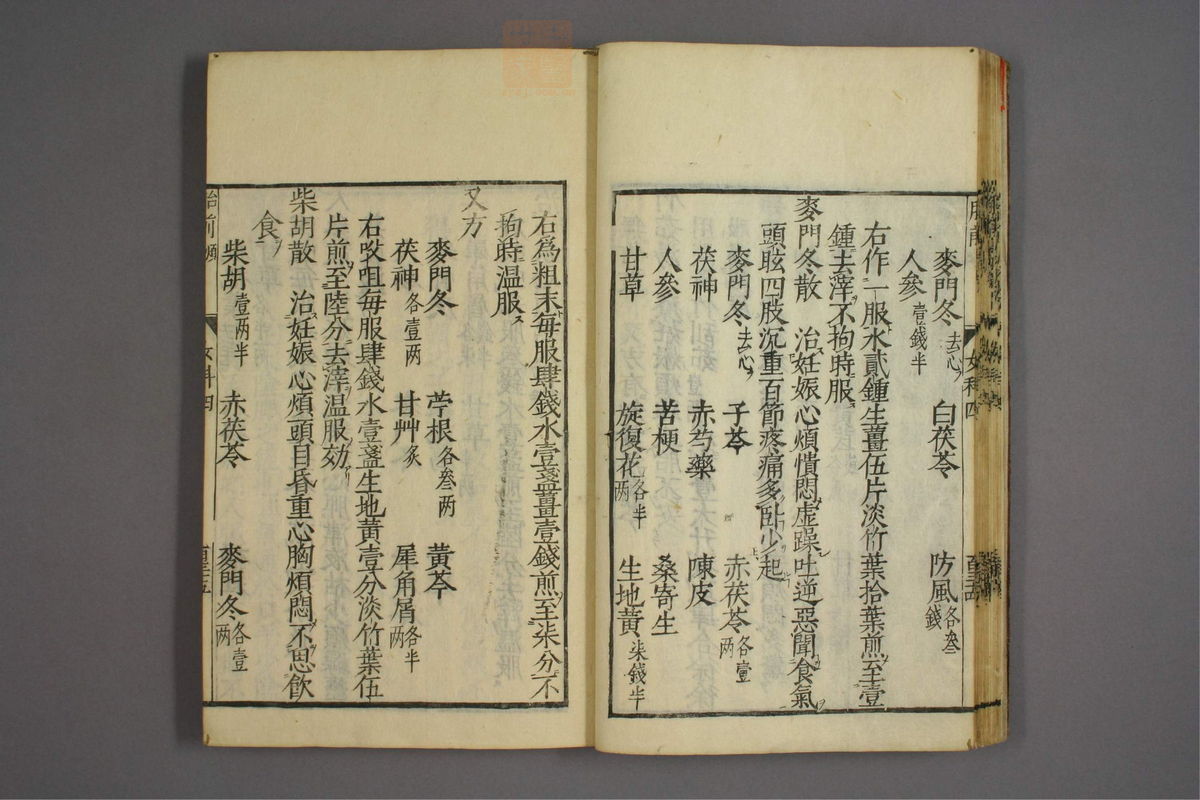 麥門冬去心 白茯苓 防風各叁錢
人參壹錢半
右作一服水貳鍾生薑伍片淡竹葉拾葉煎至壹
鍾去滓不拘時服
麥門冬散 治妊娠心煩憒悶虛躁吐逆惡聞食氣
頭眩四肢沉重百節疼痛多臥少起
麥門冬去心 子芩 赤茯苓各壹兩
茯神 赤芍藥 陳皮
人參 苦梗 桑寄生
甘草 旋復花各半兩 生地黃柒錢半
右爲粗末每服肆錢水壹盞薑壹錢煎至柒分不
拘時温服
又方
麥門冬 苧根各叁两 黃芩
茯神各壹两 甘艸炙 犀角屑各半两
右㕮咀每服肆錢水壹盞生地黃壹分淡竹葉伍
片煎至陸分去滓温服効
柴胡散 治妊娠心煩頭目昏重心胸煩悶不思飲
食
柴胡壹两半 赤茯苓 麥門冬各壹两
胎前 女科四